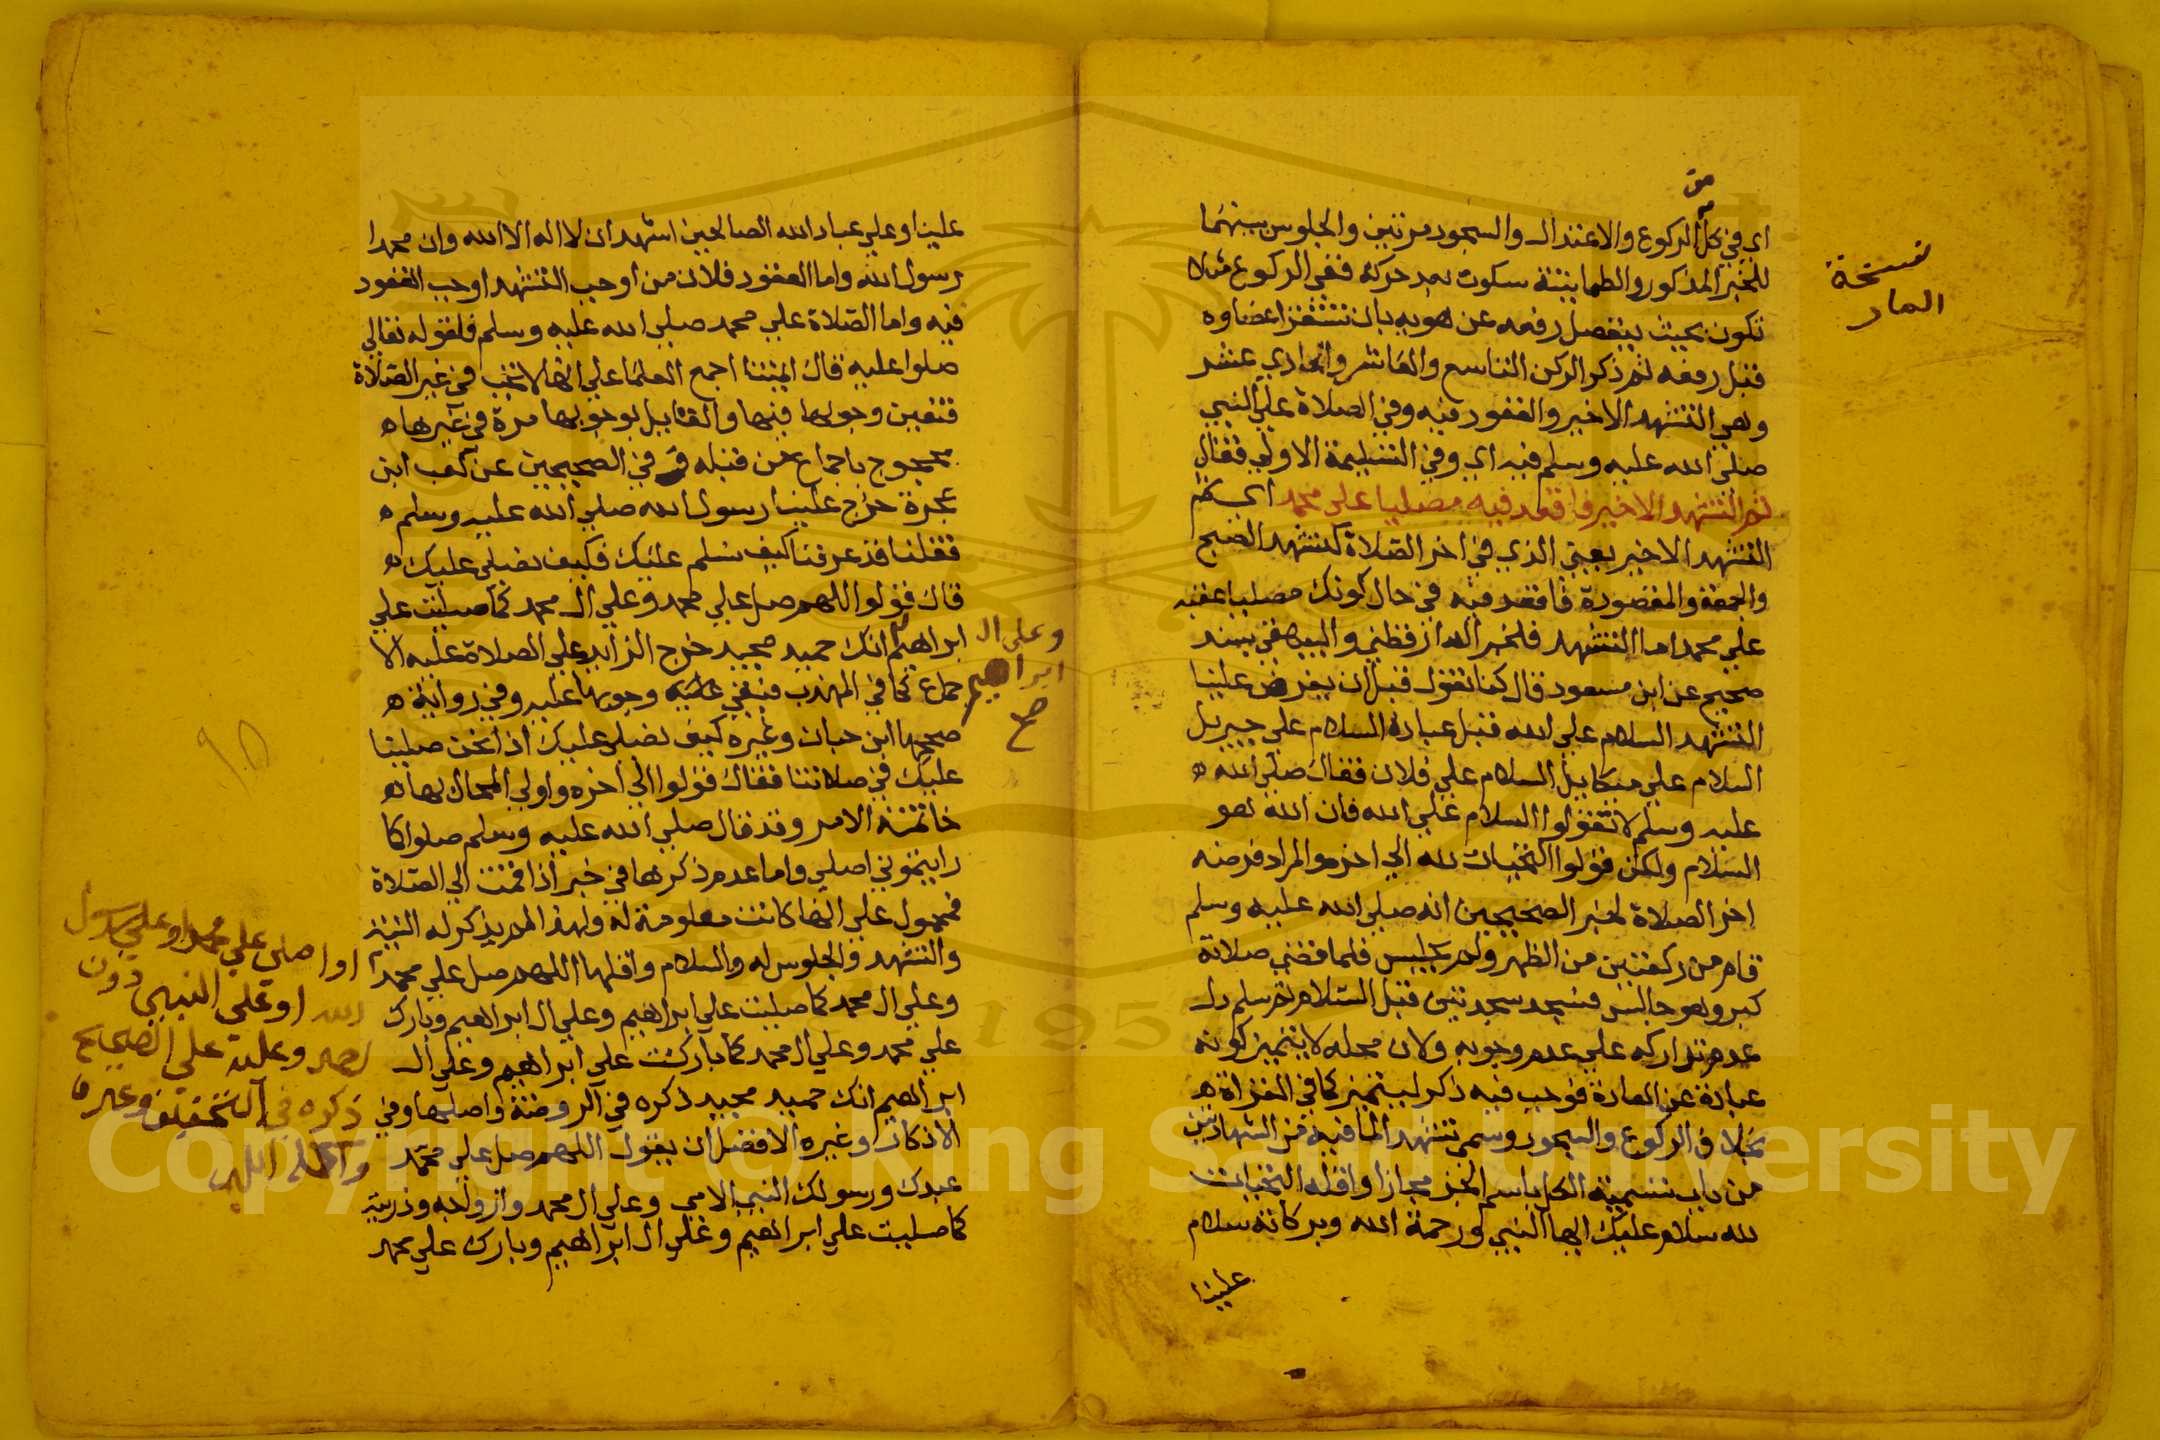 من
اي في كل الركوع والاعتدال والسجود مرتين والجلوس بينهما
للخبر المذكور والطمانينة سكون بعد حركة ففي الركوع مثلا
تكون بحيث ينفصل رفعه عن هويه بان تستقر اعضاوه
قبل رفعه ثم ذكر الركن التاسع والعاشر والحادي عشر
وهي التشهد الاخير والقعود فيه وفي الصلاة علي النبي
صلي الله عليه وسلم فيه اي وفي التسليمة الاولي فقال
ثم التشهد الاخير فاقعد فيه مصليا علي محمد اي ثم
التشهد الاخير يعني الذي في اخر الصلاة كتشهد الصبح
والجمعة والمقصورة فاقعد فيه في حال كونك مصليا عقبه
علي محمد اما التشهد فلخبر الدارقطني والبيهقي بسند
صحيح عن ابن مسعود قال كنا نقول قبل ان يفرض علينا
التشهد السلام علي الله قبل عباده السلام علي جبريل
السلام علي ميكاييل السلام علي فلان فقال صلي الله ه
عليه وسلم لا تقولوا السلام علي الله فان الله هو
السلام ولكن قولوا التحيات لله الي اخره والمراد فرضه
اخر الصلاة لخبر الصحيحين انه صلي الله عليه وسلم
قام من ركعتين من الظهر ولم يجلس فلما قضي صلاته
كبر وهو جالس فسجد سجدتين قبل السلام ثم سلم دل
عدم تداركه علي عدم وجوبه ولان محله لا يتميز كونه
عبادة عن العادة فوجب فيه ذكر ليتميز كما في القراة ه
بخلاف الركوع والسجود وسمي تشهدا لما فيه من الشهادتين
من باب تسمية الكل باسم الجزء مجازا واقله التحيات
لله سلام عليك ايها النبي ورحمة الله وبركاته سلام
علينا
نسخة
علينا وعلي عباد الله الصالحين اشهد ان لا اله الا الله وان محمدا
رسول الله واما القعود فلان من اوجب التشهد اوجب القعود
فيه واما الصلاة علي محمد صلي الله عليه وسلم فلقوله تعالي
صلوا عليه قال ايمتنا اجمع العلما علي انها لا تجب في غير الصلاة
فتعين وجوبها فيها والقايل بوجوبها مرة في غيرها ه
محجوج باجماع من قبله وفي الصحيحين عن كعب ابن
عجرة خرج علينا رسول الله صلي الله عليه وسلم ه
فقلنا قد عرفنا كيف نسلم عليك فكيف نصلي عليك ه
قال قولوا اللهم صل علي محمد وعلي ال محمد كما صليت علي
ابراهيم انك حميد مجيد خرج الزايد علي الصلاة عليه الا
جماع كما في المهذب فبقي عليه وجوبها عليه وفي رواية ه
صححها ابن حبان وغيره كيف نصلي عليك اذا نحن صلينا
عليك في صلاتنا فقال قولوا الي اخره واولي المحال بها ه
خاتمة الامر وقد قال صلي الله عليه وسلم صلوا كا
رايتموني اصلي واما عدم ذكرها في خبر اذا قمت الي الصلاة
فمحمول علي انها كانت معلومة له ولهذا لم يذكر له النية
والتشهد والجلوس له والسلام واقلها اللهم صل علي محمد
وعلي ال محمد كما صليت علي ابراهيم وعلي ال ابراهيم وبارك
علي محمد وعلي ال محمد كما باركت علي ابراهيم وعلي ال
ابراهيم انك حميد مجيد ذكره في الروضة واصلها وفي
الاذكار وغيره الافضل ان يقول اللهم صل علي محمد
عبدك ورسولك النبي الامي وعلي ال محمد وازواجه وذريته
كما صليت علي ابراهيم وعلي ال ابراهيم وبارك علي محمد
وعلي ال
ابراهيم
صح
او اصلي علي محمد او علي رسول
الله او علي النبي دون
احمد وعليه علي الصحيح
ذكره في التحقيق وغيره
Copyright © King Saud University
1957